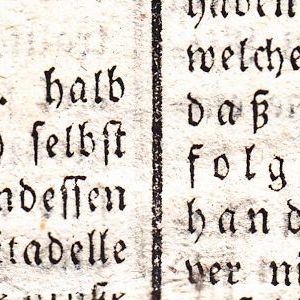 halb
ſelbſt
ndeſſen
itadelle
haben
welche
daß
folg
hand
ver ni